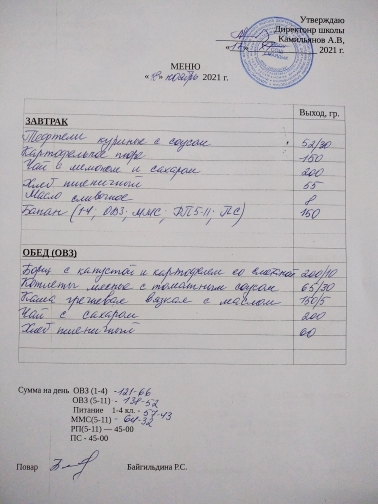 Утверждаю
Директонр школы
Камильянов А.В,
2021 г.
МЕНЮ
ноябрь 2021 г.
Выход, гр.
ЗАВТРАК
Тефтели куриные с соусом 52/30
Картофельное пюре 150
Чай с лимоном и сахаром 200
Хлеб пшеничный 55
Масло сливочное 8
Банан (1-4, ОВЗ; ММС; РП5-11; ПС) 150
ОБЕД (ОВЗ)
Борщ с капустой и картофелем со сметаной 200/10
Котлеты мясные с томатным соусом 65/30
Каша гречневая вязкая с маслом 150/5
Чай с сахаром 200
Хлеб пшеничный 60
Сумма на день ОВЗ (1-4) -121-66
ОВЗ (5-11) - 138-52
Питание 1-4 кл. - 57-43
ММС(5-11) - 64-32
РП(5-11) — 45-00
ПС - 45-00
Повар Байгильдина Р.С.